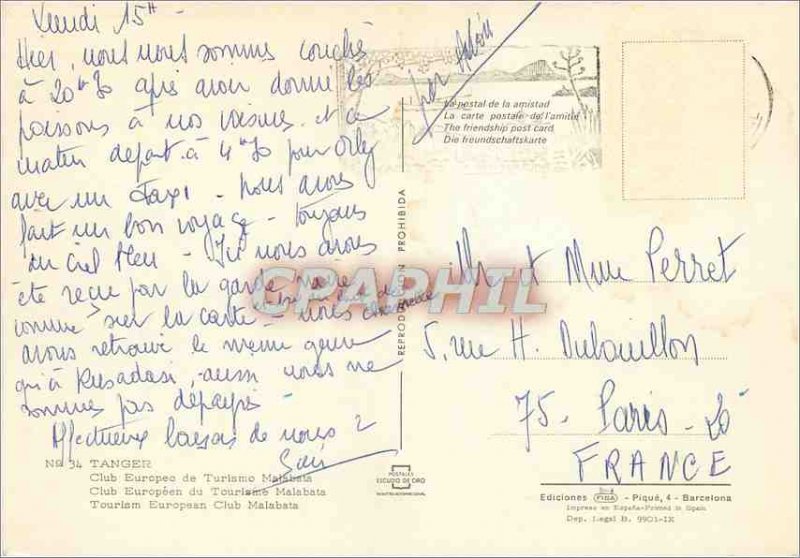 Lundi 15H
Hier, nous nous sommes couchés
à 20h30 après avoir donné les
poissons à nos voisins. et ce
matin départ à 4h30 pour Orly
avec un Taxi - nous avons
fait un bon voyage - toujours
du ciel bleu - Ici nous avons
été reçu par la garde noire
comme sur la carte - nous
avons retrouvé le même genre
qu'à Kusadasi, aussi nous ne
sommes pas dépaysés -
Affectueux baisers de nous 2
Par Avión
La postal de la amistad
La carte postale de l'amitié
The friendship post card
Die freundschaftskarte
REPRODUCCION PROHIBIDA
CPAPHIL
Mr et Mme Perret
5, rue H. Dubouillon
75 - Paris - 20e
FRANCE
Nº 34 TANGER
Club Europeo de Turismo Malabata
Club Européen du Tourisme Malabata
Tourism European Club Malabata
POSTALES
ESCUDO DE ORO
Ediciones FISA - Piqué, 4 - Barcelona
Impreso en España-Printed in Spain
Dep. Legal B. 9901-IX